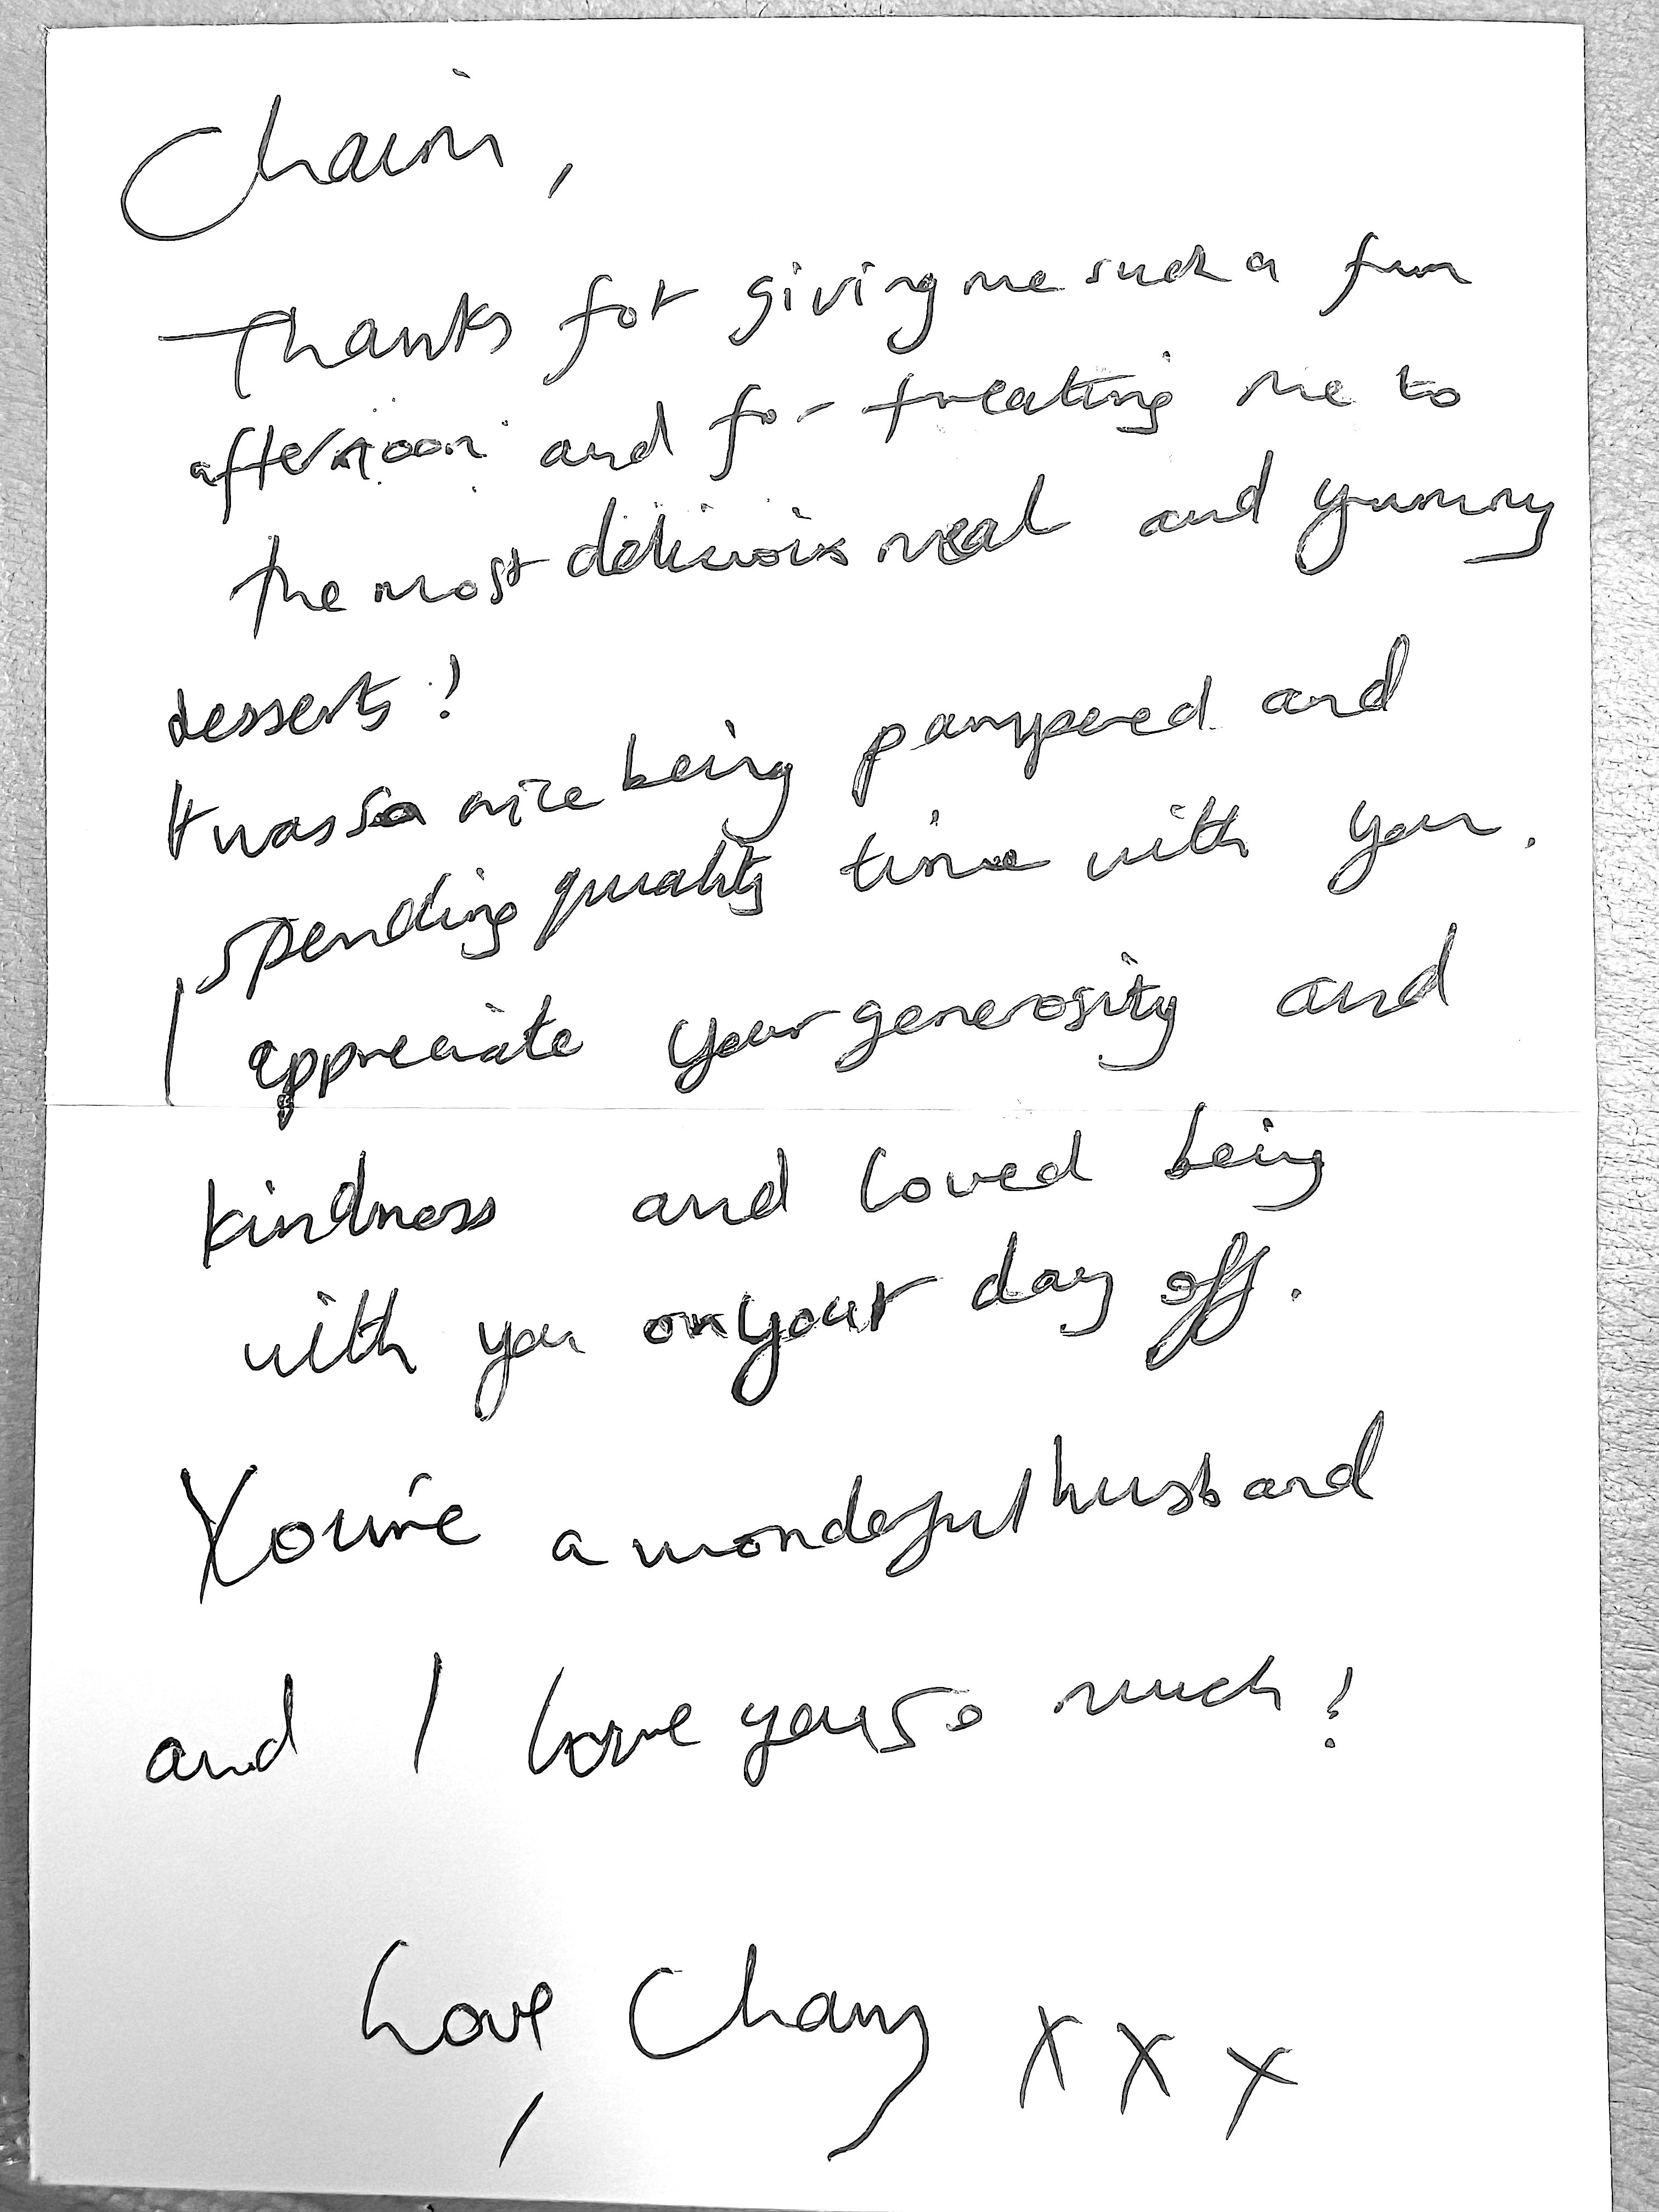 Chaim,
Thanks for giving me such a fun
afternoon and for treating me to
the most delicious meal and yummy
desserts!
It was so nice being pampered and
spending quality time with you.
I appreciate your generosity and
kindness and loved being
with you on your day off.
You're a wonderful husband
and I love you so much!
Love, Chany xxx